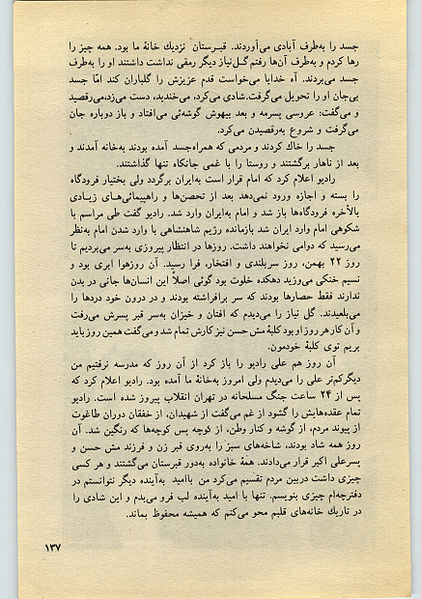 جسد را به‌طرف آبادی می‌آوردند. قبرستان نزدیك خانهٔ ما بود. همه چیز را
رها کردم و به‌طرف آن‌ها رفتم گل‌نیاز دیگر رمقی نداشت داشتند او را به‌طرف
جسد می‌بردند. آه خدایا می‌خواست قدم عزیزش را گلباران کند امّا جسد
بی‌جان او را تحویل می‌گرفت.شادی می‌کرد، می‌خندید، دست می‌زد،می‌رقصید
و می‌گفت: عروسی پسرمه و بعد بیهوش گوشه‌ئی می‌افتاد و باز دوباره جان
می‌گرفت و شروع به‌رقصیدن می‌کرد.
جسد را خاك کردند و مردمی که همراه‌جسد آمده بودند به‌خانه آمدند و
بعد از ناهار برگشتند و روستا را با غمی جانکاه تنها گذاشتند.
رادیو اعلام کرد که امام قرار است به‌ایران برگردد ولی بختیار فرودگاه
را بسته و اجازه ورود نمی‌دهد بعد از تحصن‌ها و راهپیمائی‌هـای زیـادی
بالأخره فرودگاه‌ها باز شد و امام به‌ایران وارد شد. رادیو گفت طی مراسم با
شکوهی امام وارد ایران شد بازمانده رژیم شاهنشاهی با وارد شدن امام به‌نظر
می‌رسید که دوامی نخواهند داشت. روزها در انتظار پیروزی به‌سر می‌بردیم تا
روز ۲۲ بهمن، روز سربلندی و افتخار، فرا رسید. آن روزهوا ابری بود و
نسیم خنکی می‌وزید دهکده خلوت بود گوئی اصلاً این انسان‌ها جانی در بدن
ندارند فقط حصارها بودند که سر برافراشته بودند و در درون خود دردها را
می‌بلعیدند. گل نیاز را می‌دیدم که افتان و خیزان به‌سر قبر پسرش می‌رفت
و آن کار هر روز او بود کلبهٔ مش حسن نیز کارش تمام شد و می‌گفت همین روز باید
بریم توی کلبهٔ خودمون.
آن روز هم علی رادیو را باز کرد از آن روز که مدرسه نرفتیم من
دیگرکم‌تر علی را می‌دیدم ولی امروز به‌خانهٔ ما آمده بود. رادیو اعلام کرد که
پس از ۲۴ ساعت جنگ مسلحانه در تهران انقلاب پیروز شده است. رادیو
تمام عقده‌هایش را گشود از غم می‌گفت از شهیدان، از خفقان دوران طاغوت
از پیوند مردم، از گوشه و کنار وطن، از کوچه پس کوچه‌ها که رنگین شد. آن
روز همه شاد بودند، شاخه‌های سبز را به‌روی قبر زن و فرزند مش حسن و
پسرعلی اکبر قرار می‌دادند. همهٔ خانواده به‌دور قبرستان می‌گشتند و هر کسی
چیزی داشت دربین مردم تقسیم می‌کرد من باامید به‌آینده دیگر نتوانستم در
دفترچه‌ام چیزی بنویسم. تنها با امید به‌آینده لب فرو می‌بدم و این شادی را
در تاریك خانه‌های قلبم محو می‌کنم که همیشه محفوظ بماند.
۱۳۷